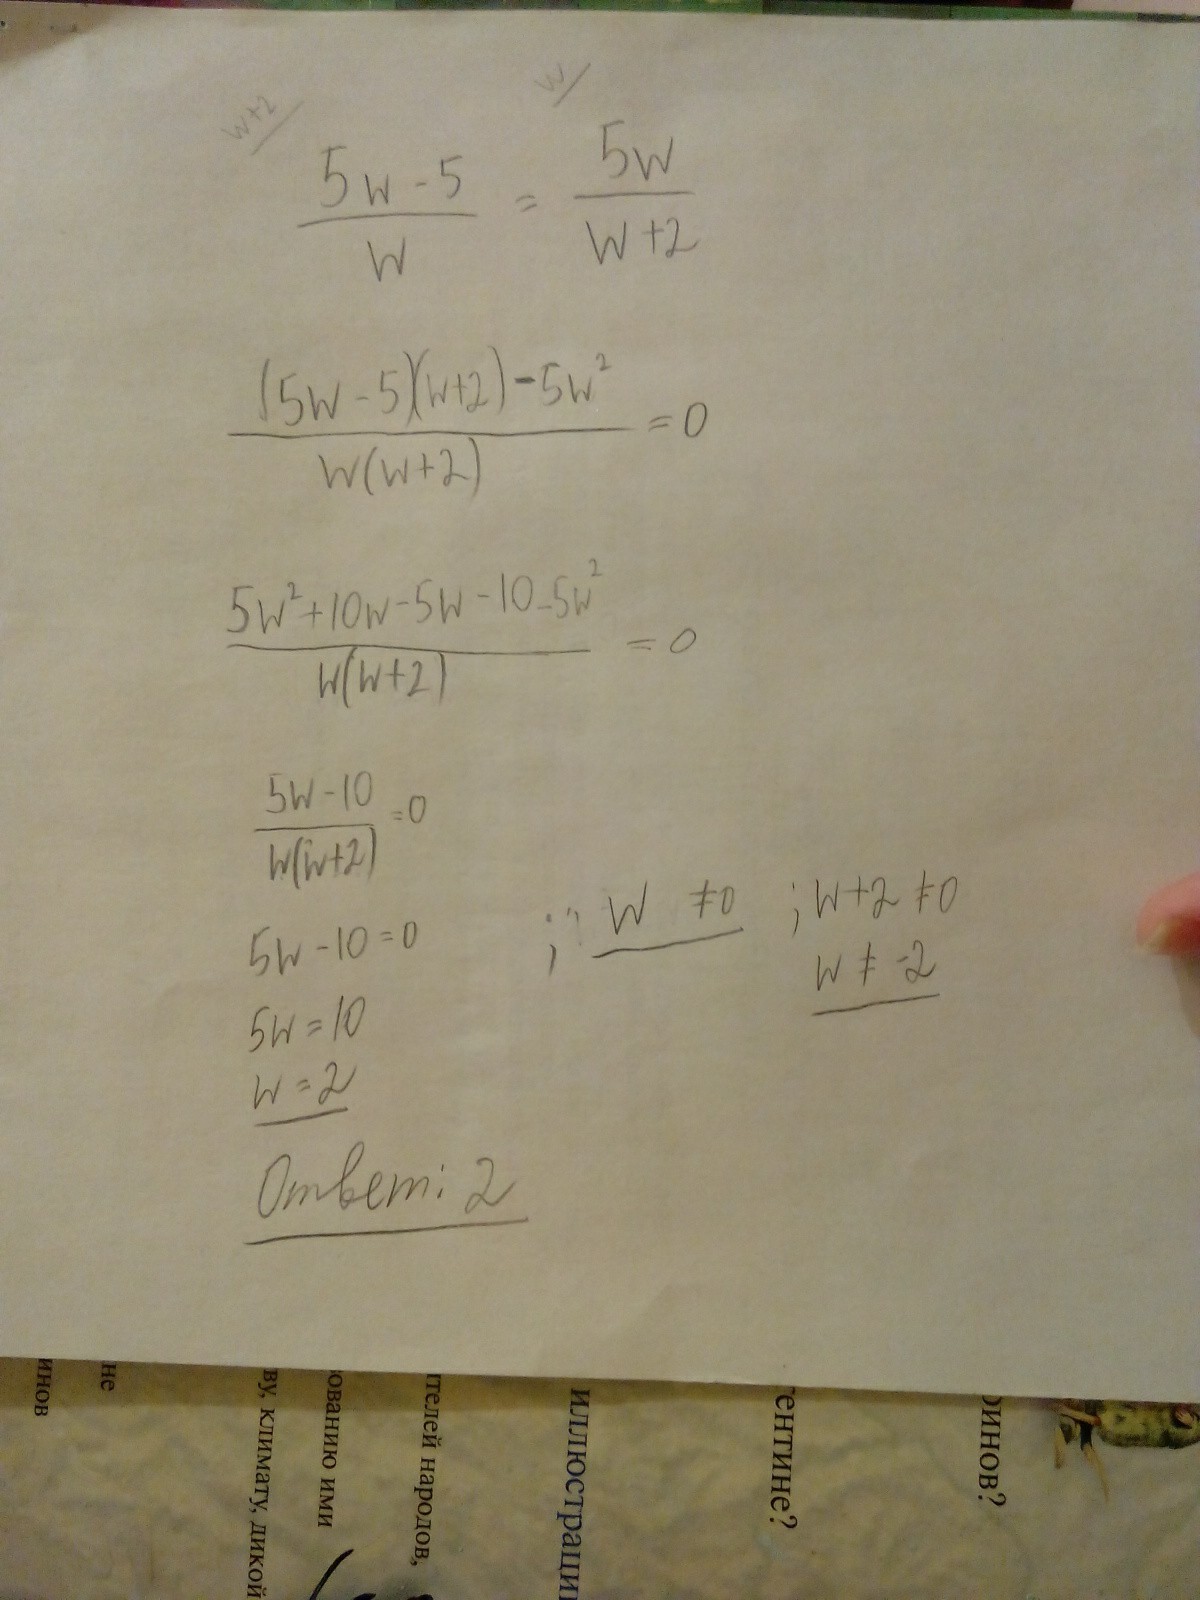 w+2 w
5w - 5 / w = 5w / w+2
(5w - 5)(w+2) - 5w² / w(w+2) = 0
5w² + 10w - 5w - 10 - 5w² / w(w+2) = 0
5w - 10 / w(w+2) = 0
5w - 10 = 0 ; w ≠ 0 ; w+2 ≠ 0
w ≠ -2
5w = 10
w = 2
Ответ: 2
инов
не
ву, климату, дикой
зованию ими
ителей народов,
иллюстрации
ентине?
ринов?